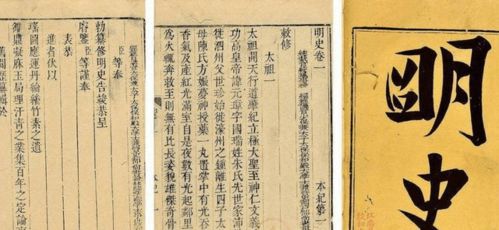 明史
明史卷一
本紀第一
敕修
太祖一
太祖開天行道肇紀立極大聖至神仁文義
功高皇帝諱元璋字國瑞姓朱氏先世家沛
徙泗州父世珍始徙濠州之鍾離生四子太
母陳氏方娠夢神授藥一丸置掌中有光吞
香氣及產紅光滿室自是夜數有光起鄰里
為火輒奔救至則無有比長姿貌雄傑奇骨
臣等奉
勅纂修明史告竣恭呈
臣等謹奉
表恭
進者伏以
瑤圖應運丹綸繙竹素之遺
玉局理汗青之業集百年之定論